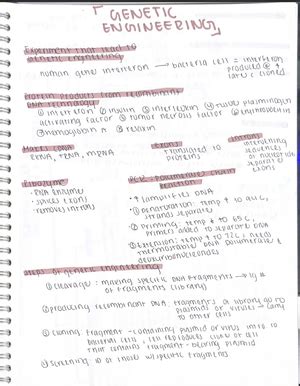 「GENETIC
ENGINEERING」
Experiment that lead to
genetic engineering
human gene interferon → bacteria cell = interferon
produced &
later cloned
Protein products from recombinant
DNA technology
① interferon ② insulin ③ interleukin ④ tissue plasminogen
activating factor ⑤ tumor necrosis factor ⑥ erythropoietin
⑦ hemoglobin A ⑧ relaxin
Makes DNA
rRNA, tRNA, mRNA
exons
translated to
proteins
introns
intervening
sequences
of nucleotide
separate
exons
Ribozyme
- RNA enzyme
- splices exons
- removes introns
PCR: Polymerase chain
reaction
- ↑ (amplifies) DNA
① Denaturation: temp ↑ to 94 C,
strands separate
② Priming: temp ↓ to 65 C,
primers added to separate DNA
③ Extension: temp ↑ to 72 C, add
thermostable DNA polymerase &
deoxyribonucleotides
steps of genetic engineering
① cleavage: making specific DNA fragments →
of fragments (library)
② producing recombinant DNA: fragments of library go to
plasmid or viruses → carry
to other cells
③ cloning fragment - containing plasmid or virus into
bacterial cell, cell reproduces clone of cell
that contains fragment-bearing plasmid
④ screening ID of clone w/ specific fragments